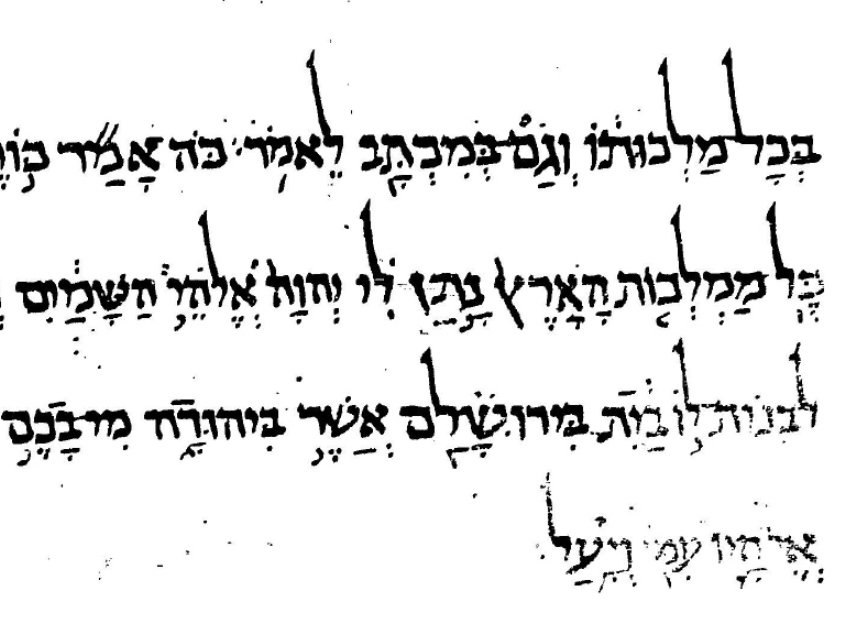 בְּכָל מַלְכוּתוֹ וְגַם בְּמִכְתָּב לֵאמֹר׃ כֹּה אָמַר כּוֹרֶ
כָּל מַמְלְכוֹת הָאָרֶץ נָתַן לִי יְהוָה אֱלֹהֵי הַשָּׁמַיִם
לִבְנוֹת לוֹ בַיִת בִּירוּשָׁלִַם אֲשֶׁר בִּיהוּדָה מִי בָכֶם
אֱלֹהָיו עִמּוֹ וְיָעַל